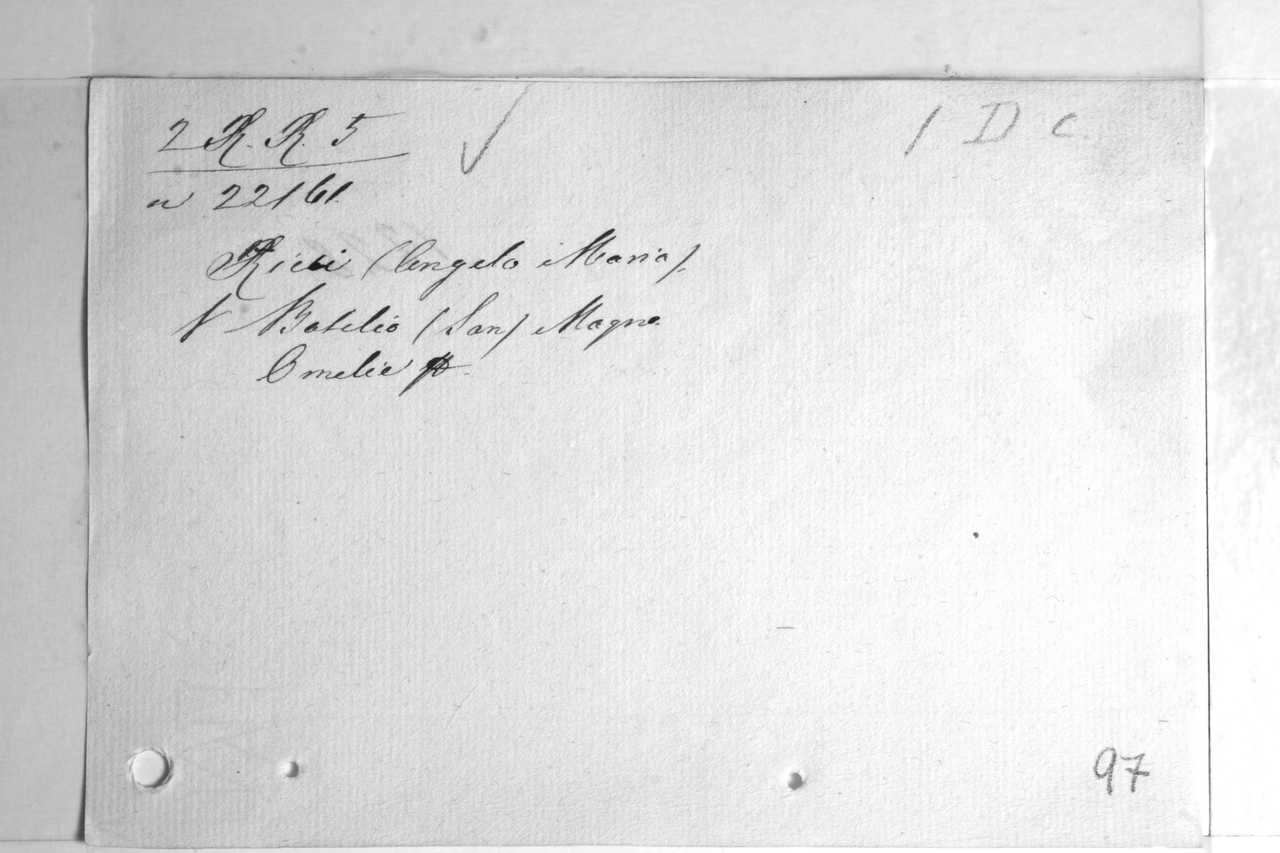 2 R. R. 5
1 D c.
n 22161.
Ricci (Angelo Maria).
V Basilio (San) Magno.
Omelie
97